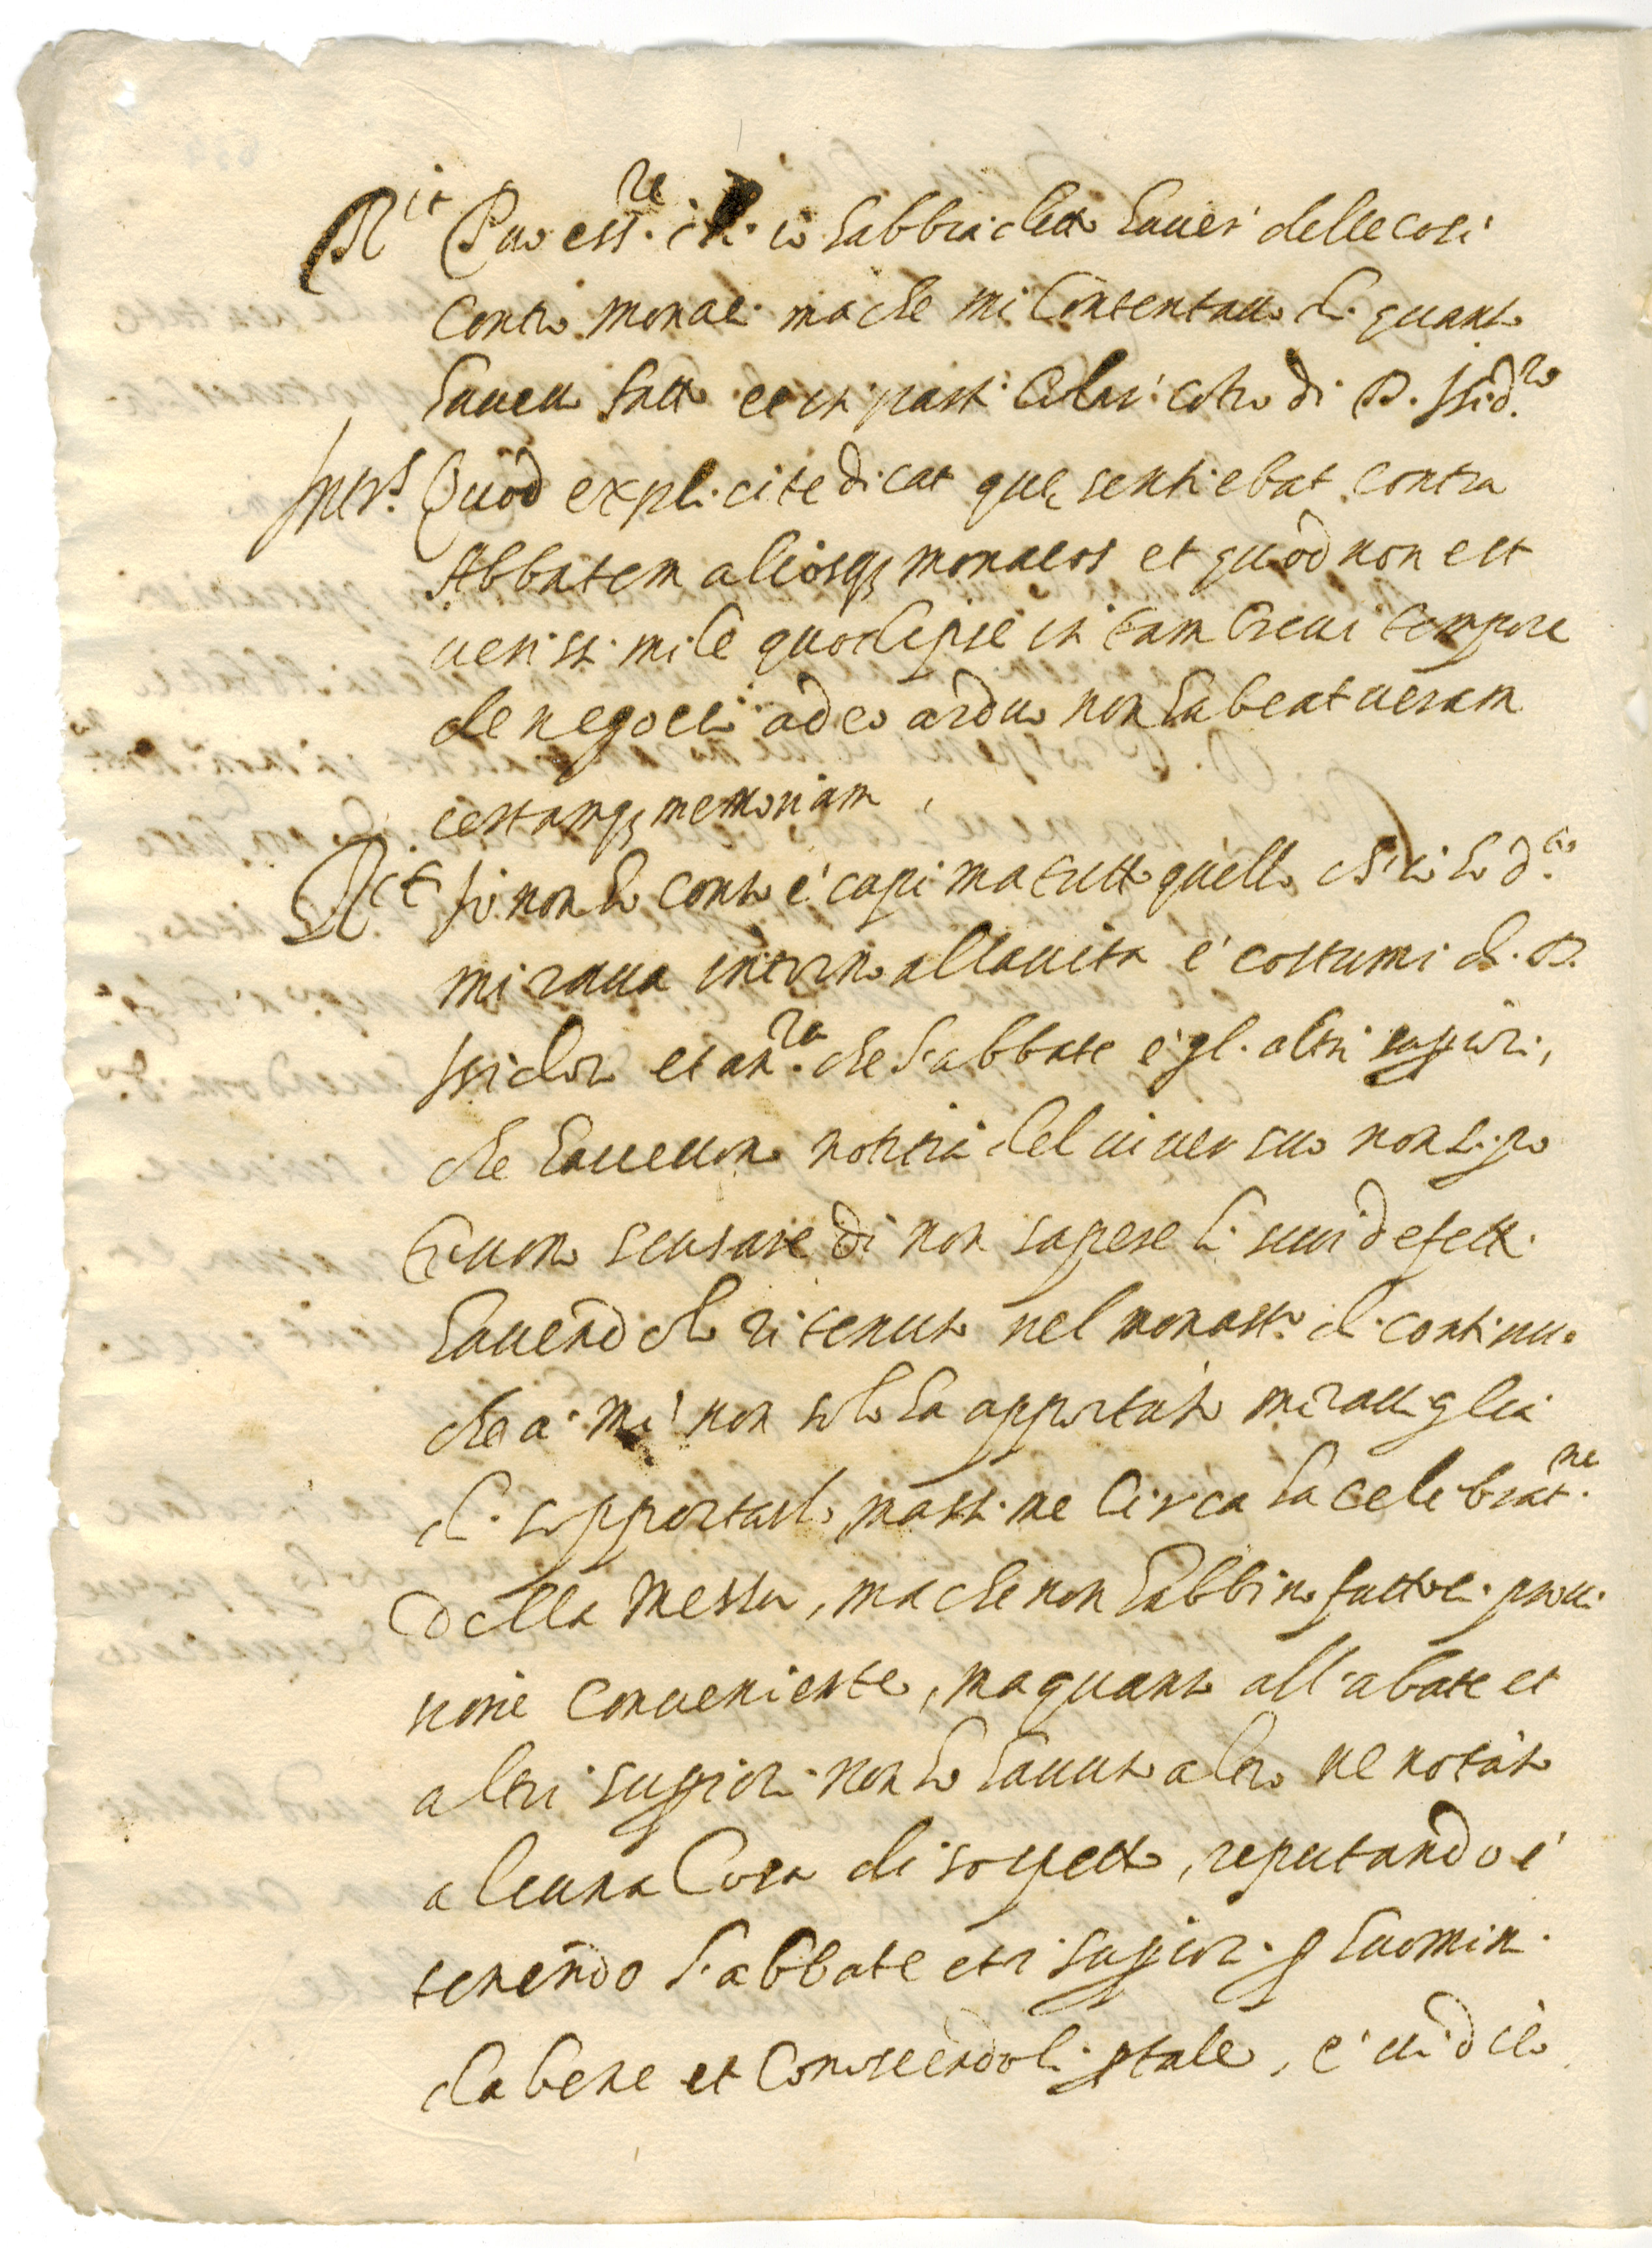 R.it Può ess.re ch. io habbia detto haver delle cose
contro monaci ma che mi contentavo di quanto
havevo fatto et in particolar contro di D. Isid.ro
Int.s Quod explicite dicat quę sentiebat contra
Abbatem aliosq; monacos et quod non est
verissimile quod ipse in tam brevi tempore
de negocio adeo arduo non habeat veram
certamq; memoriam,
R.it Io non ho conto e' capi ma tutto quello ch'io ho d.to
mirava intorno alla vita e' costumi di D.
Isidoro et an.ra che l'abbate e' gl'altri supiori,
che havevano notitia del viver suo non si po
trivono scusare di non sapere li suoi defetti
havendolo ritenuto nel monast.o di continuo
che a' me non solo ha apportato maraviglia
di sopportarlo, massime circa la celebrat.ne
della Messa, ma che non habbino fattoli provi
sione conveniente, ma quanto all'abate et
altri supiori non ho havuto altro ne notato
alcuna cosa di sospetto, reputando e'
tenendo l'abbate et i supiori p huomini
da bene et conoscendoli p tale, e' vi dico